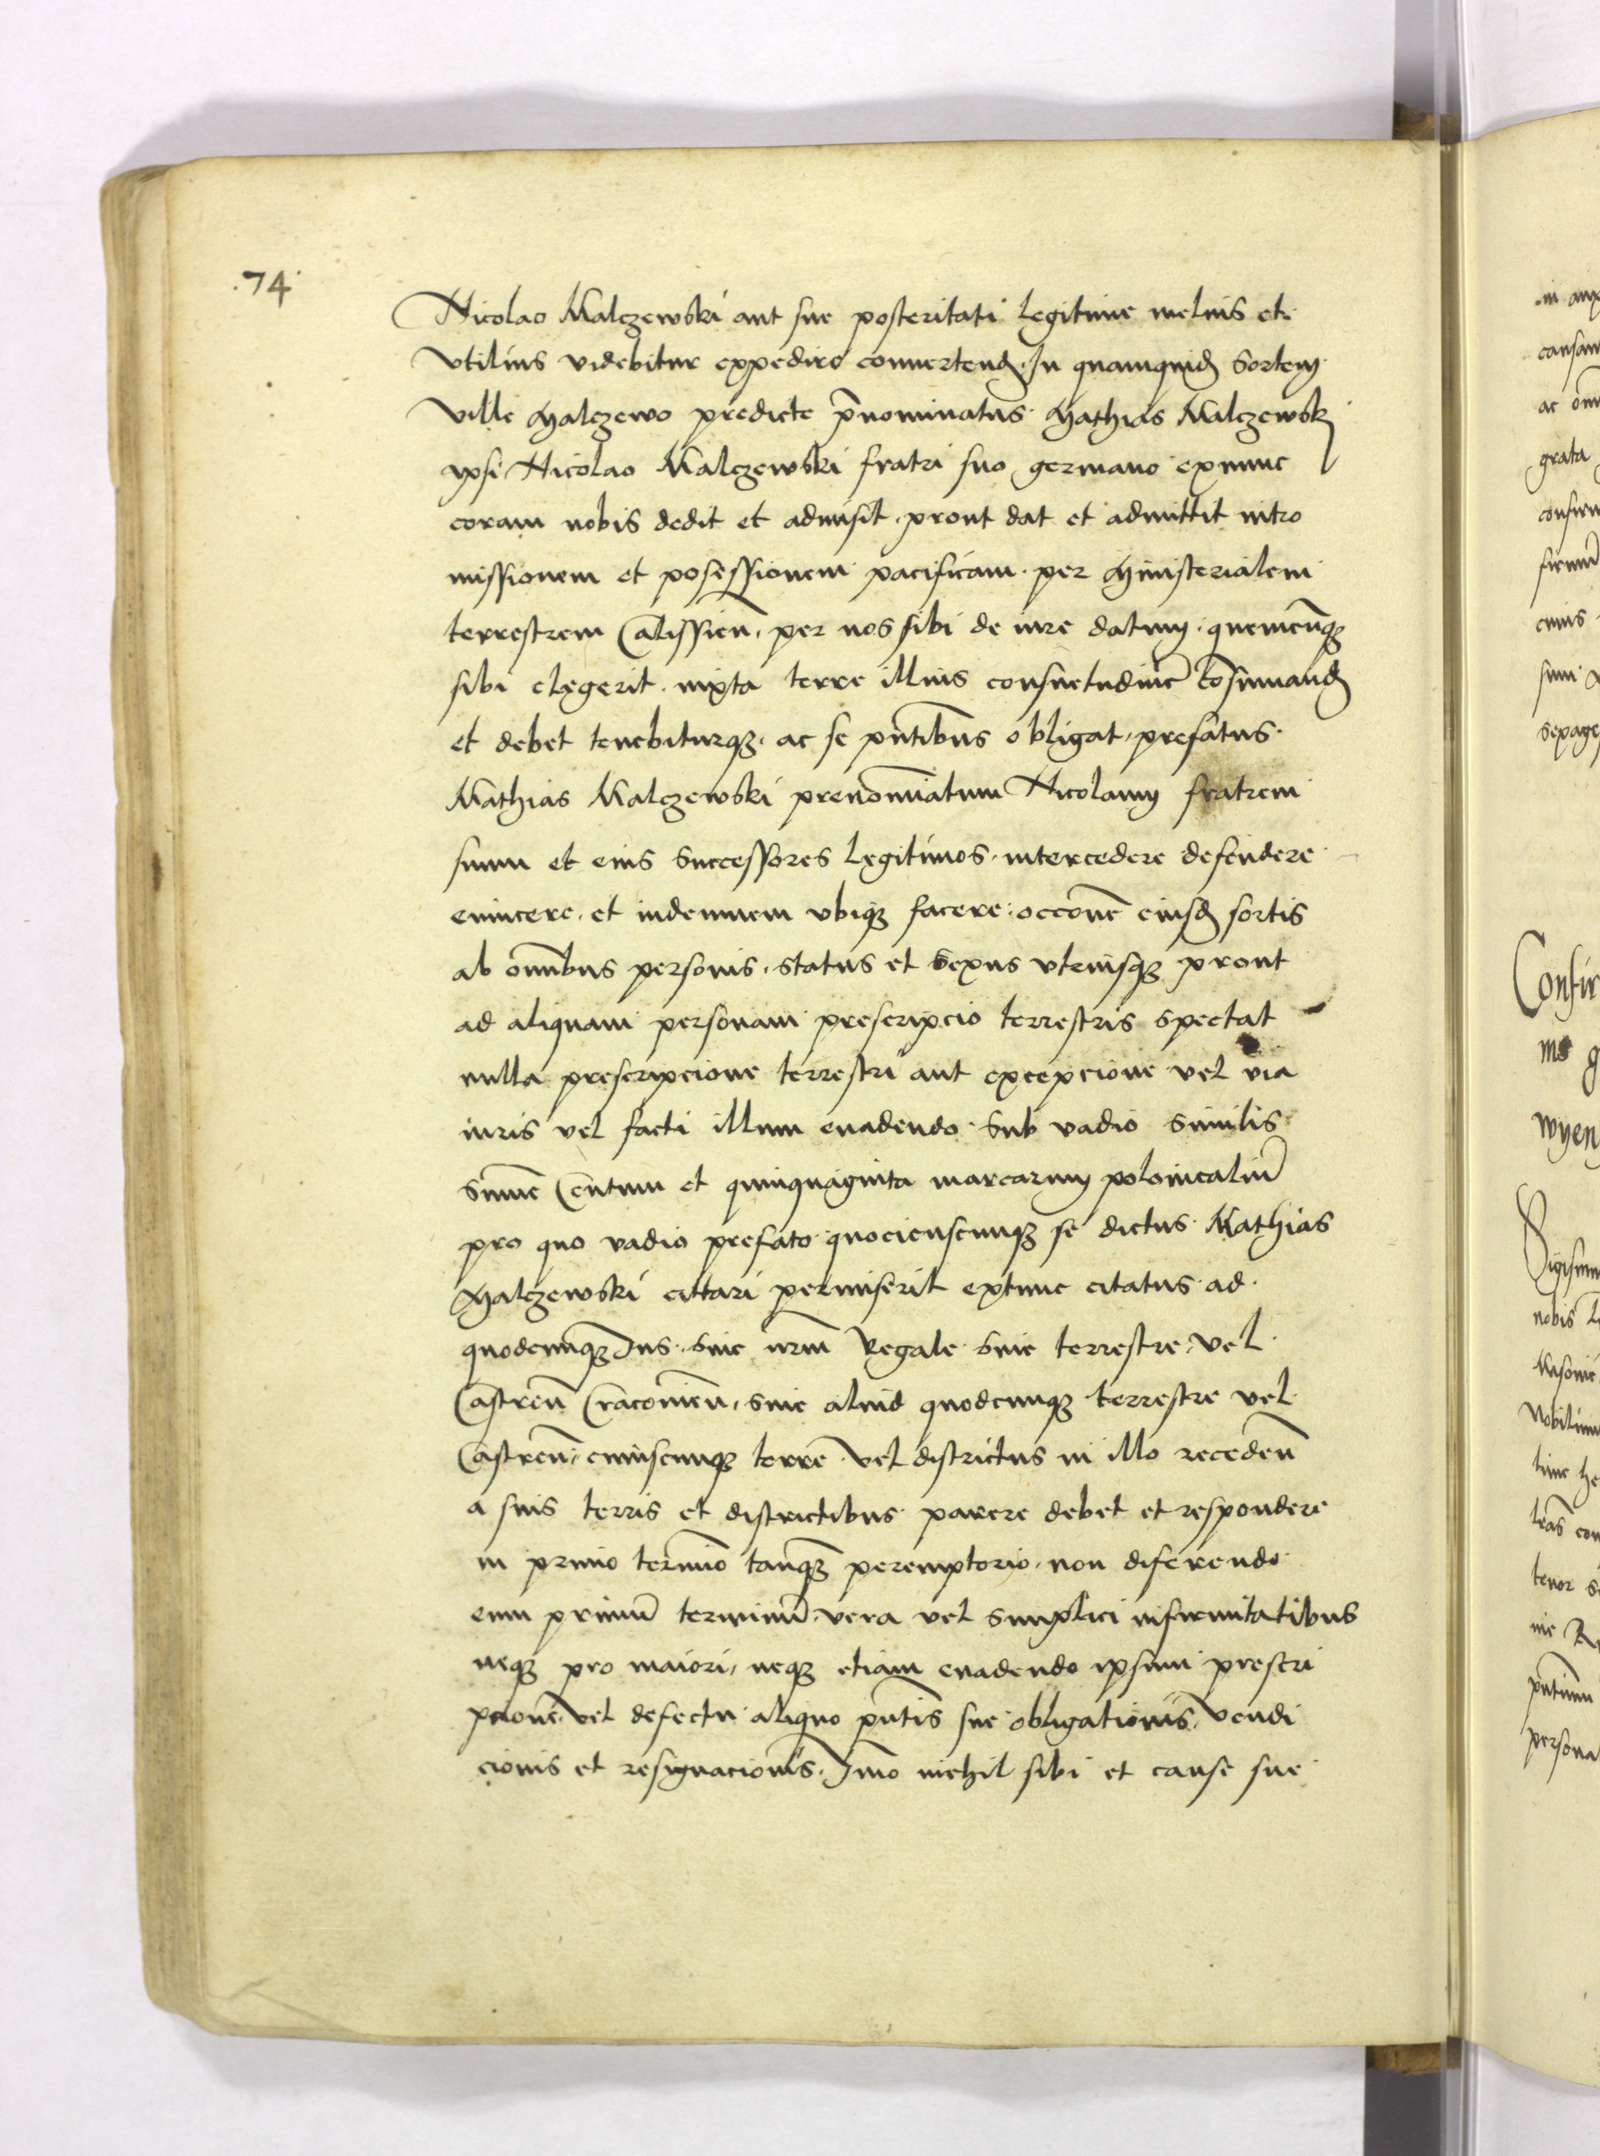 .74.
Nicolao Malczewski aut sue posteritati legitime melius et
vtilius videbitur expedire conuertend. In quamquid sortem
ville Malczewo predicte prenominatus Mathias Malczewski
ipsi Nicolao Malczewski fratri suo germano exnunc
coram nobis dedit et admisit, prout dat et admittit intro
missionem et possessionem pacificam per Ministerialem
terrestrem Calissien, per nos sibi de iure datum, quemcunq
sibi elegerit, iuxta terre illius consuetudine
et debet tenebiturq, ac se pntibus obligat, prefatus
Mathias Malczewski prenominatum Nicolaum fratrem
suum et eius successores legitimos, intercedere defendere
euincere, et indemnem vbiq facere, occone eiusd sortis
ab omnibus personis, status et sexus vtriusq prout
ad aliquam personam prescripcio terrestris spectat
nulla prescripcione terrestri aut excepcione vel via
iuris vel facti illum euadendo. Sub vadio similis
summe Centum et quinquaginta marcarum polonicaliu
pro quo vadio prefato quocienscunq se dictus Mathias
Malczewski cittari permiserit extunc citatus ad
quodcunq Ius, siue nrm Regale siue terrestre, vel
Castren Cracouien, siue aliud quodcunq terrestre vel
Castren, cuiuscunq terre vel districtus in illo receden
a suis terris et districtibus parere debet et respondere
in primo termino tanq peremptorio, non diferendo
eum primu terminu, vera vel simplici infirmitatibus
neq pro maiori, neq etiam euadendo ipsum prescri
pcione, vel defectu aliquo pntis sue obligationis, vendi
cionis et resignacionis. Imo nichil sibi et cause sue